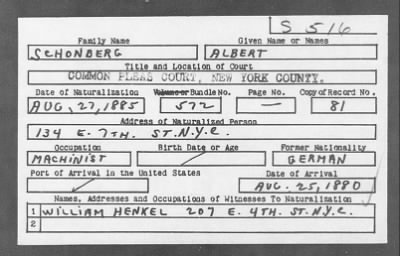 S 516
Family Name Given Name or Names
SCHONBERG ALBERT
Title and Location of Court
COMMON PLEAS COURT, NEW YORK COUNTY.
Date of Naturalization Volume or Bundle No. Page No. Copy of Record No.
AUG. 27, 1885 572 — 81
Address of Naturalized Person
134 E. 7TH. ST. N.Y.C.
Occupation Birth Date or Age Former Nationality
MACHINIST GERMAN
Port of Arrival in the United States Date of Arrival
AUG. 25, 1880
Names, Addresses and Occupations of Witnesses To Naturalization
1 WILLIAM HENKEL 207 E. 4TH. ST. N.Y.C.
2